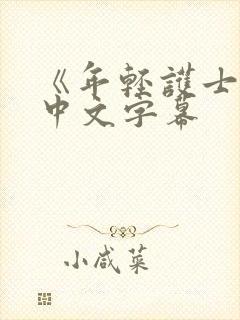 《年轻護士
中文字幕
小咸菜